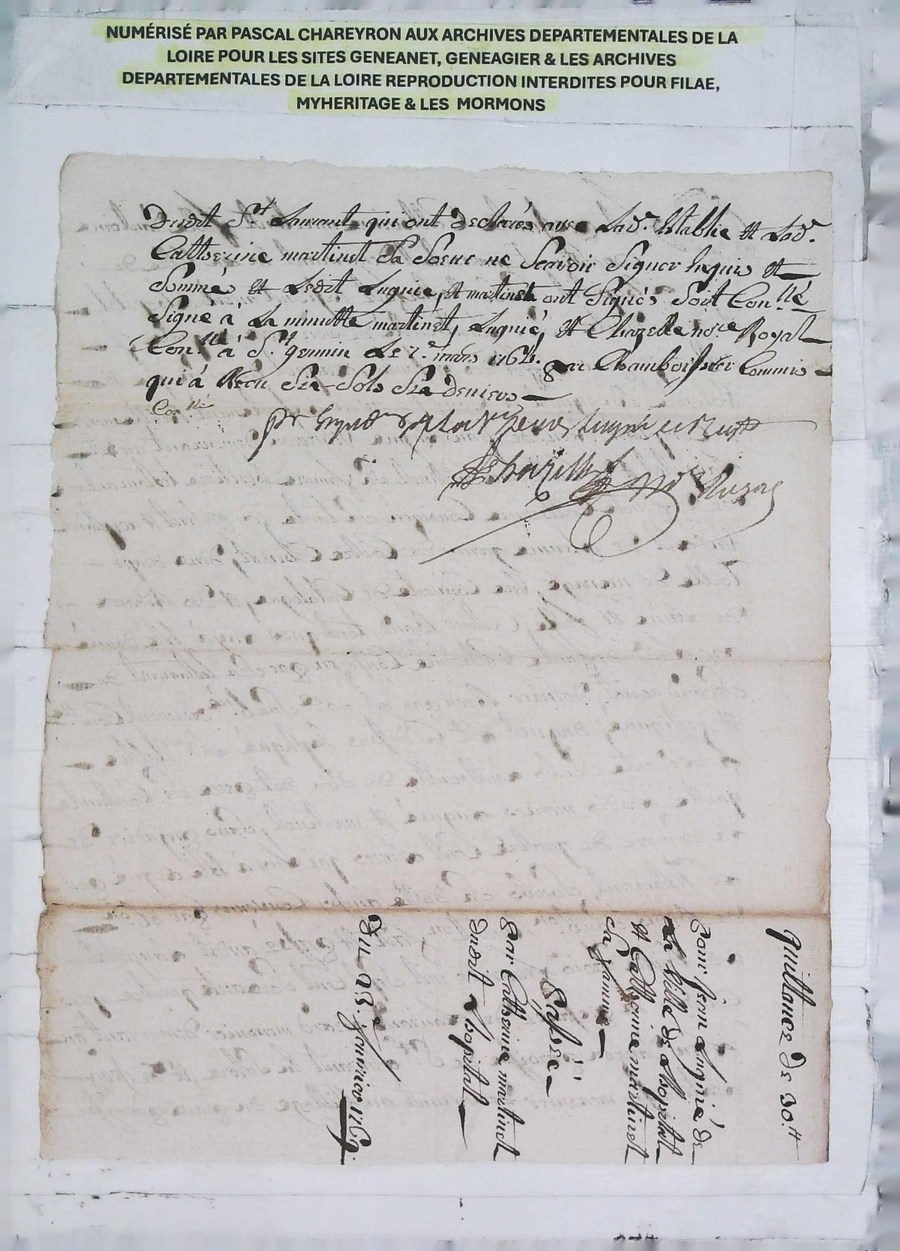 NUMÉRISÉ PAR PASCAL CHAREYRON AUX ARCHIVES DEPARTEMENTALES DE LA
LOIRE POUR LES SITES GENEANET, GENEAGIER & LES ARCHIVES
DEPARTEMENTALES DE LA LOIRE REPRODUCTION INTERDITES POUR FILAE,
MYHERITAGE & LES MORMONS
Dudit St Laurant qui ont declarés avec Lad. Establie et Lad.
Catherine martinet Sa Soeur ne Scavoir Signer Enquis et
Sommés et Ledit Lugnié, et martinet ont Signés Soit Conllé
Signé à La minutte martinet, Lugnié, et Chazelle nore Royal
Conllé à St germin Le mars par Commis
qui à Recu Six Sols Six deniers
Conllé
Lugnié
Chazelle nore Royal
quittance de 30.tt
pour jean Lugnié de
La ville de Lhopital
et Catherine martinet
sa femme
Passée
par Catherine martinet
dudit Lhopital
Du 23. janvier